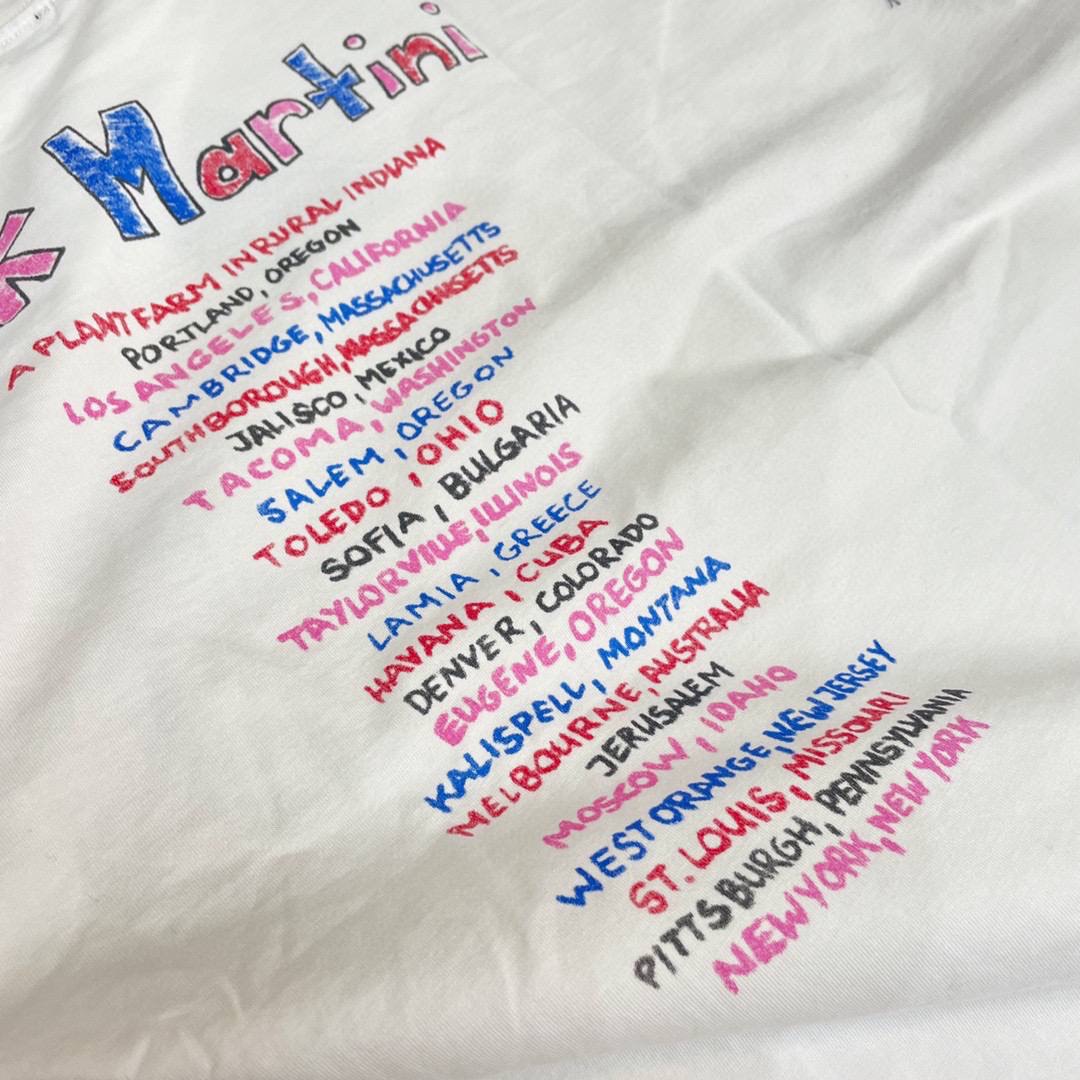 k Martini
A PLANT FARM IN RURAL INDIANA
PORTLAND, OREGON
LOS ANGELES, CALIFORNIA
CAMBRIDGE, MASSACHUSETTS
SOUTHBOROUGH, MASSACHUSETTS
JALISCO, MEXICO
TACOMA, WASHINGTON
SALEM, OREGON
TOLEDO, OHIO
SOFIA, BULGARIA
TAYLORVILLE, ILLINOIS
LAMIA, GREECE
HAVANA, CUBA
DENVER, COLORADO
EUGENE, OREGON
KALISPELL, MONTANA
MELBOURNE, AUSTRALIA
JERUSALEM
MOSCOW, IDAHO
WEST ORANGE, NEW JERSEY
ST. LOUIS, MISSOURI
PITTSBURGH, PENNSYLVANIA
NEW YORK, NEW YORK